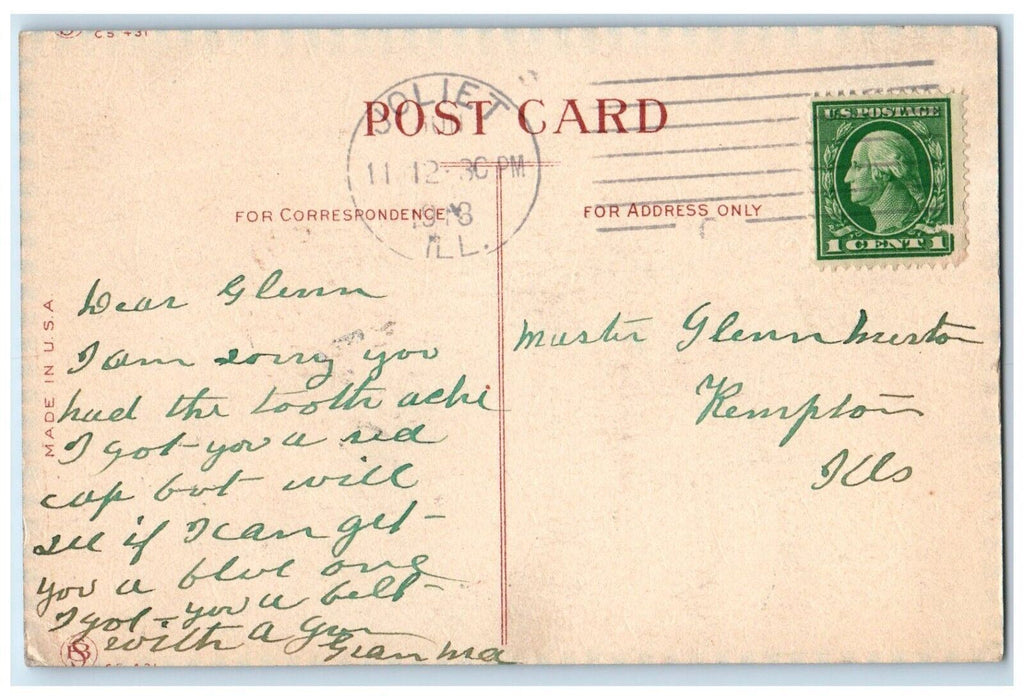 CS 431
POST CARD
JOLIET
11 12-30 PM
1913
ILL.
U.S. POSTAGE
1 CENT 1
FOR CORRESPONDENCE
FOR ADDRESS ONLY
MADE IN U.S.A
Dear Glenn
I am sorry you
had the tooth ache
I got you a red
cap but will
see if I can get
you a blue one
I got you a belt
with a gun
Gran Ma
Master Glenn
Kempton
Ills